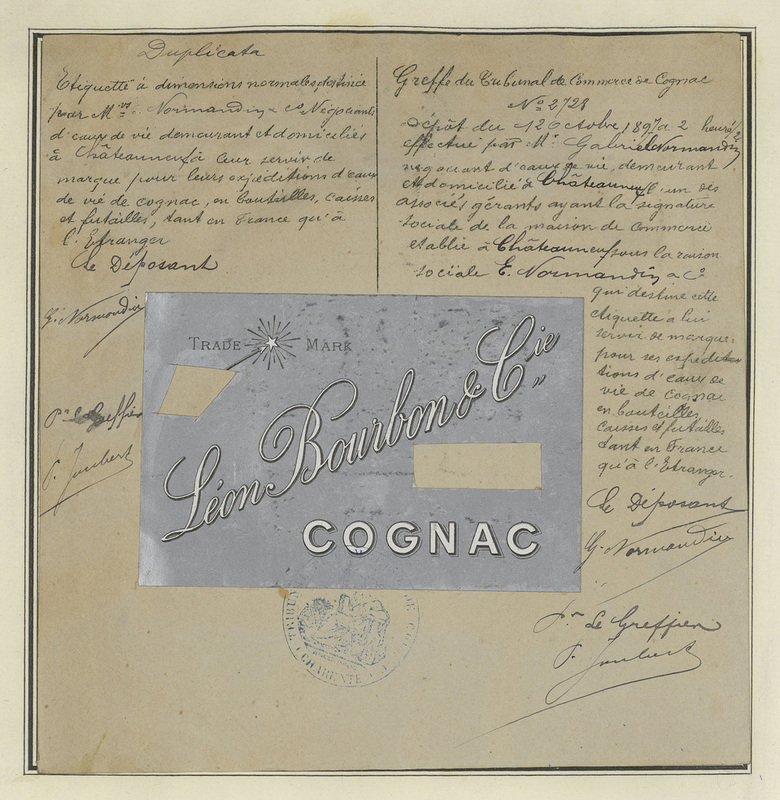 Duplicata
Etiquette à dimensions normales, destinée
pour M.rs Normandin & Co Négociants
d'eaux de vie demeurant et domiciliés
à Châteauneuf à leur servir de
marque pour leurs expéditions d'eaux
de vie de cognac, en bouteilles, caisses
et futailles, tant en France qu'à
l'Etranger
Le Déposant
G. Normandin
Pr le Greffier
P. Joubert
Greffe du Tribunal de Commerce de Cognac
No 2728
Dépôt du 12 Octobre 1897 à 2 heures
effectué par Mr. Gabriel Normandin
négociant d'eaux de vie, demeurant
et domicilié à Châteauneuf, un des
associés gérants ayant la signature
sociale de la maison de commerce
établie à Châteauneuf sous la raison
sociale E. Normandin & Co
qui destine cette
étiquette à lui
servir de marque
pour ses expédi-
tions d'eaux de
vie de cognac
en bouteilles,
caisses et futailles
tant en France
qu'à l'Etranger.
Le Déposant
G. Normandin
Pr Le Greffier
P. Joubert
TRADE MARK
Léon Bourbon & Cie
COGNAC
CHARENTE